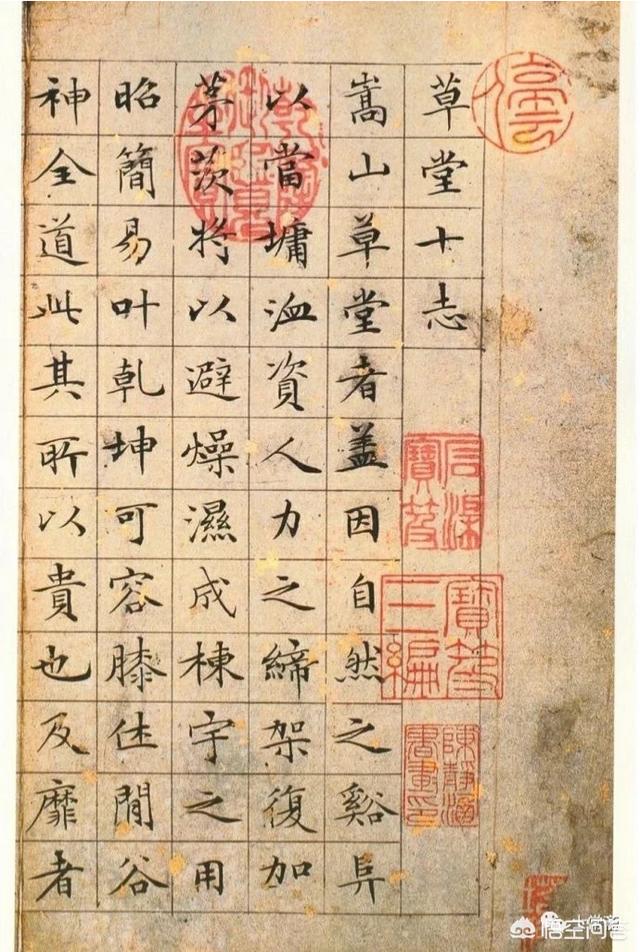 草堂十志
嵩山草堂者盖因自然之谿阜
以當墉洫資人力之締架復加
茅茨将以避燥濕成棟宇之用
昭簡易叶乾坤可容膝休閒谷
神全道此其所以貴也及靡者
石渠寶笈
寶笈三編
悟空问答